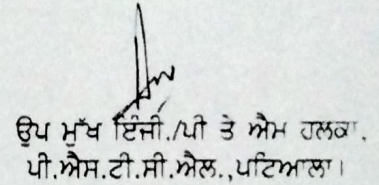 ਉਪ ਮੁੱਖ ਇੰਜੀ./ਪੀ ਤੇ ਐਮ ਹਲਕਾ,
ਪੀ.ਐਸ.ਟੀ.ਸੀ.ਐਲ.,ਪਟਿਆਲਾ।